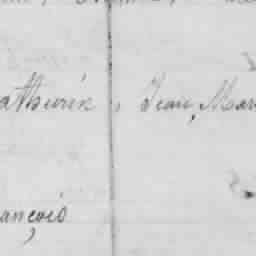 athurin, Jean, Mar
ançois